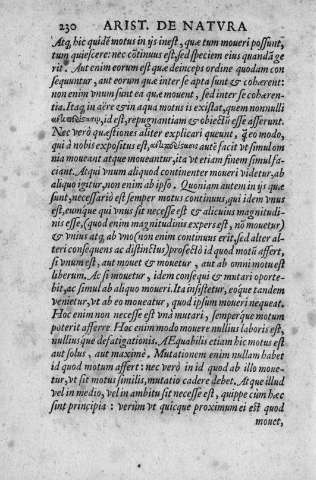 230 ARIST. DE NATVRA
Atq, hic quidē motus in ijs inest, quæ tum moueri possunt,
tum quiescere: nec cōtinuus est, sed speciem eius quandā ge
rit. Aut enim eorum est quæ deinceps ordine quodam con
sequuntur, aut eorum quæ inter se apta sunt & cohærent:
non enim vnum sunt ea quæ mouent, sed inter se cohæren-
tia. Itaq, in aëre & in aqua motus is existat, quem nonnulli
id est, repugnantiam & obiectū esse asserunt.
Nec verò quæstiones aliter explicari queunt, q̃ eo modo,
qui à nobis expositus est, autē facit vt simul om
nia moueant atque moueantur, ita vt etiam finem simul fa-
ciant. Atqui vnum aliquod continenter moueri videtur, ab
aliquo igitur, non enim ab ipso. Quoniam autem in ijs quæ
sunt, necessariò est semper motus continuus, qui idem vnus
est, eumque qui vnus sit necesse est & alicuius magnitudi-
nis esse, (quod enim magnitudinis expers est, nō mouetur)
& vnius atq, ab vno (non enim continuus erit, sed alter al-
teri consequens ac distinctus) profectò id quod motū affert,
si vnum est, aut mouet & mouetur, aut ab omni motu est
liberum. Ac si mouetur, idem consequi & mutari oporte-
bit, ac simul ab aliquo moueri. Ita insistetur, eoque tandem
venietur, vt ab eo moueatur, quod ipsum moueri nequeat.
Hoc enim non necesse est vnà mutari, semperque motum
poterit afferre. Hoc enim modo mouere nullius laboris est,
nulliusque defatigationis. AEquabilis etiam hic motus est
aut solus, aut maximè. Mutationem enim nullam habet
id quod motum affert: nec verò in id quod ab illo moue-
tur, vt sit motus similis, mutatio cadere debet. Atque illud
vel in medio, vel in ambitu sit necesse est, quippe cùm hæc
sint principia: verùm vt quicque proximum ei est quod
mouet,